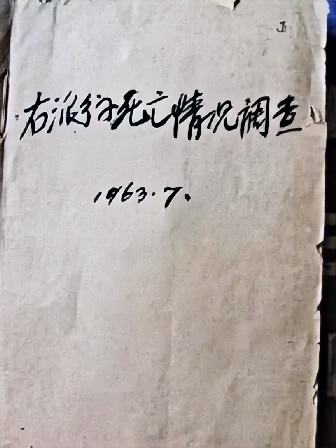 右派分子死亡情况调查
1963.7.